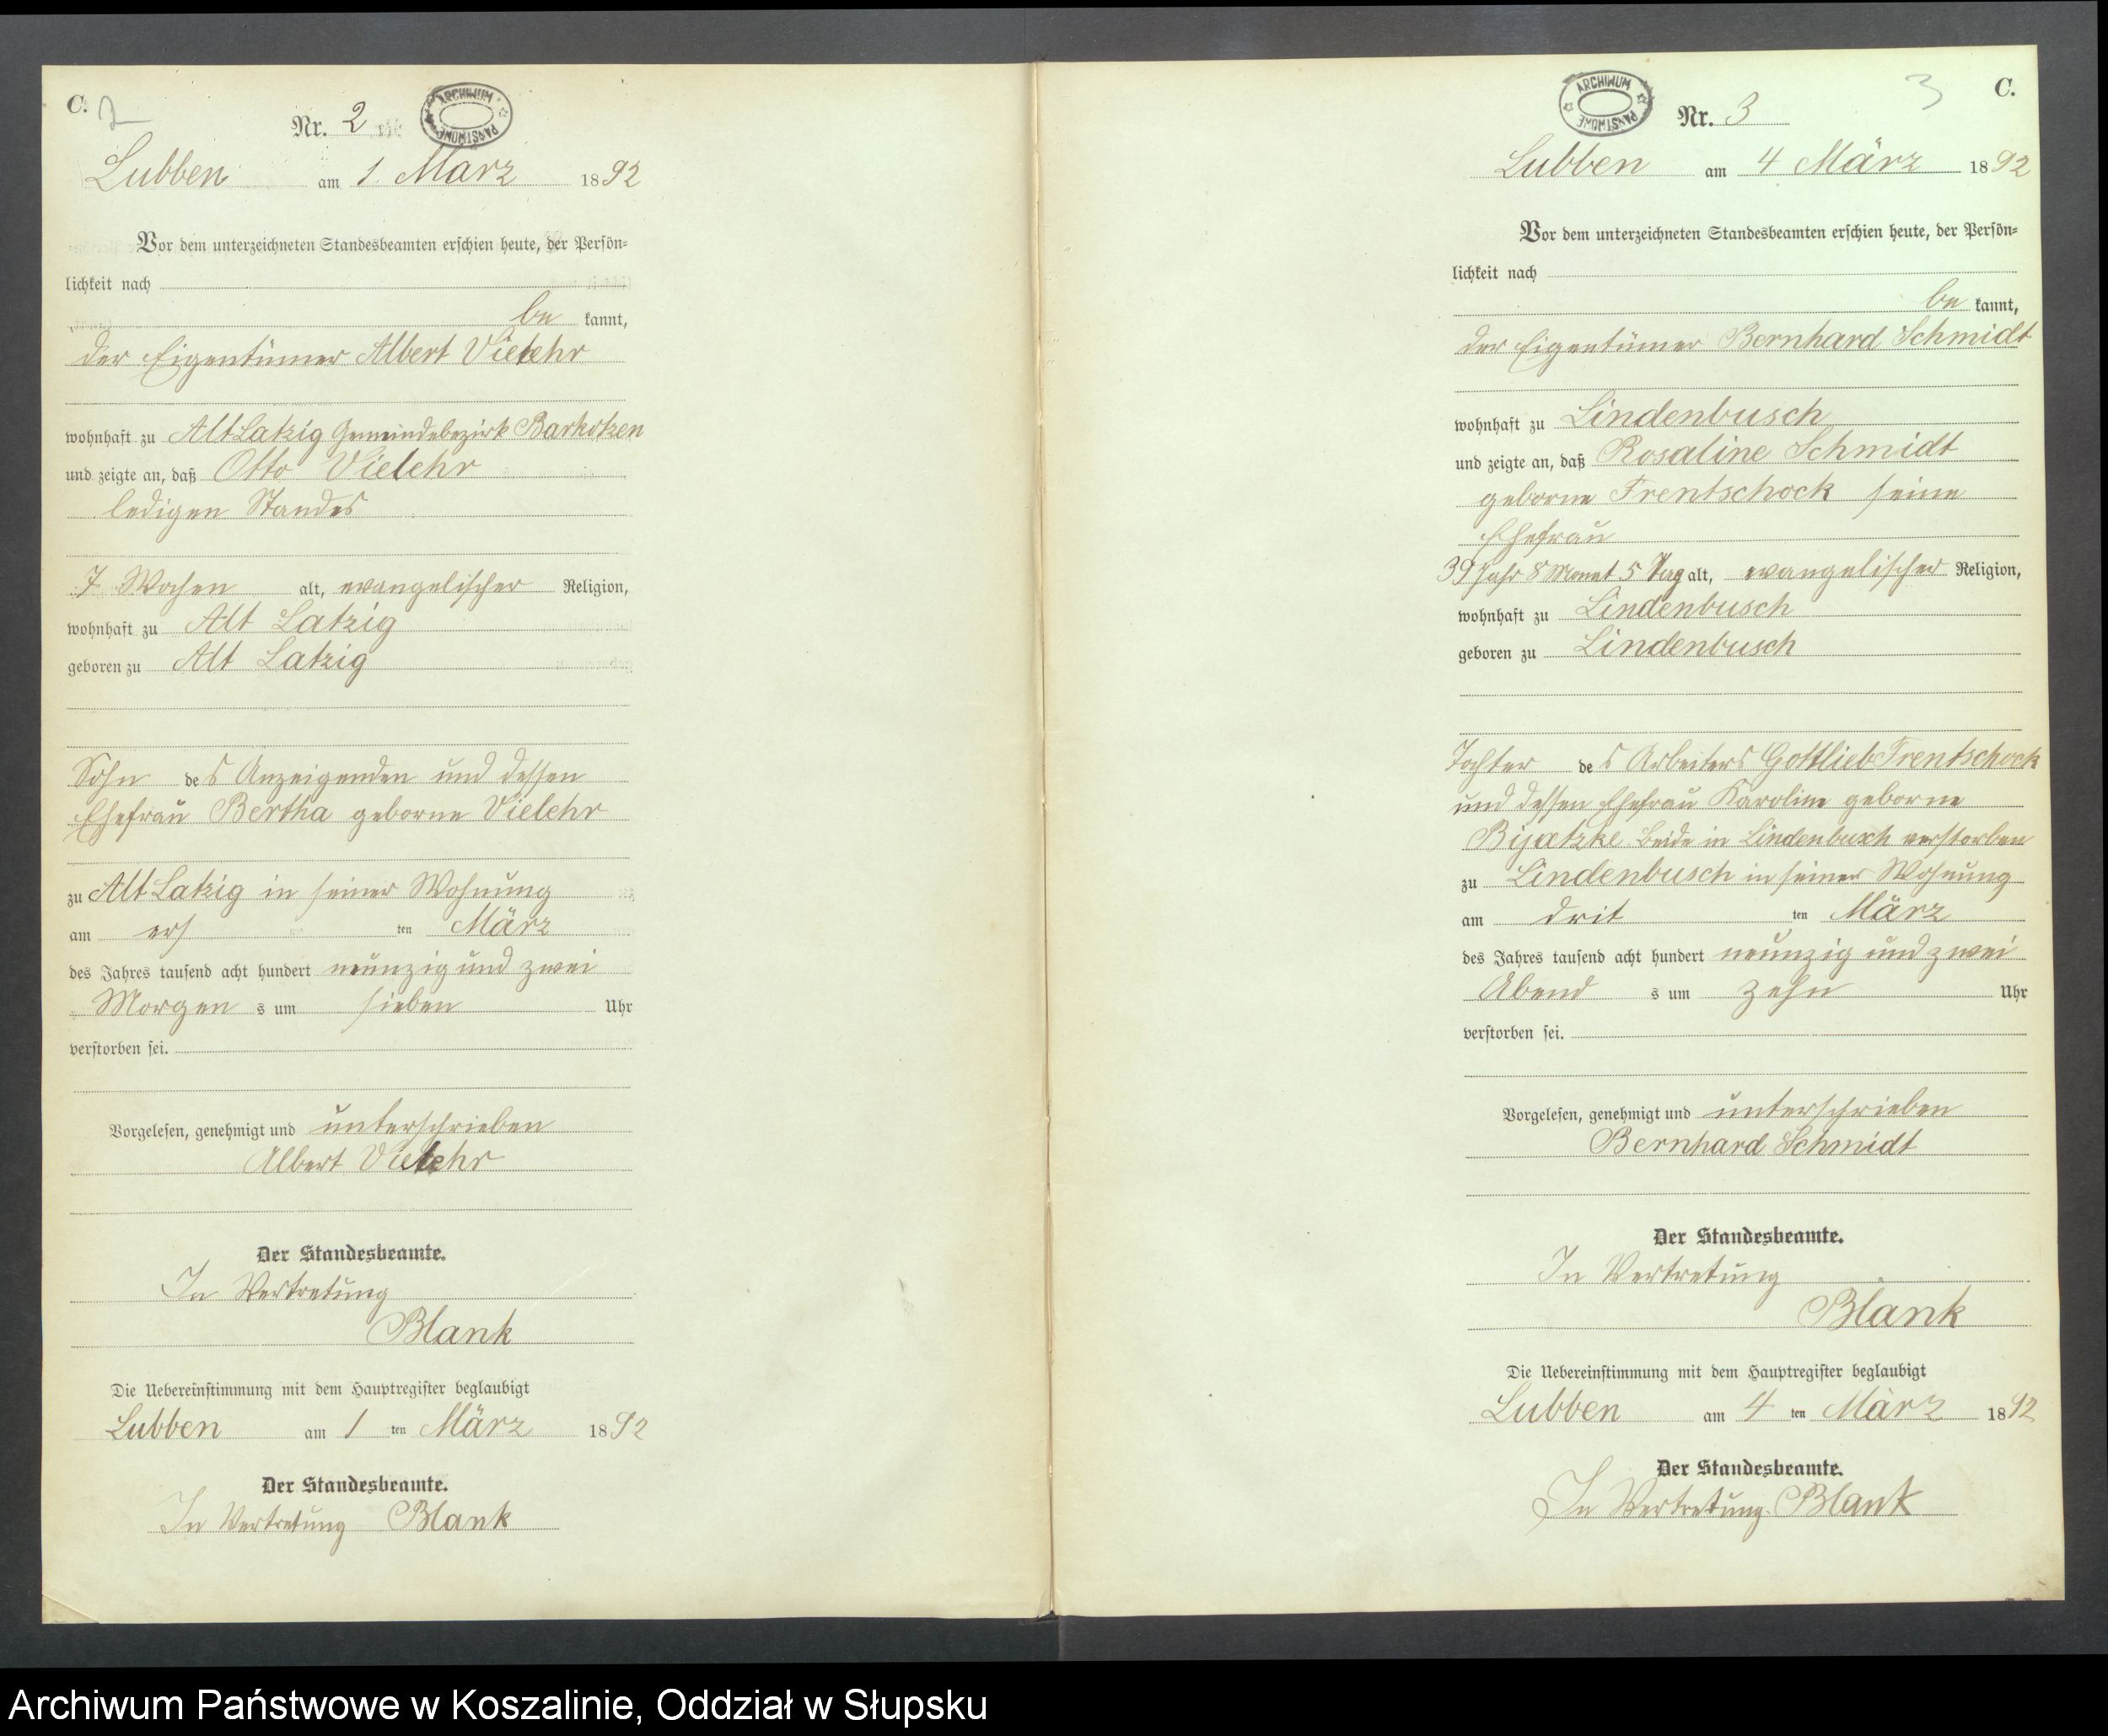 C. 2
Nr. 2
ARCHIWUM PAŃSTWOWE
Lubben am 1. März 1892
Vor dem unterzeichneten Standesbeamten erschien heute, der Persön-
lichkeit nach
be kannt,
der Eigentümer Albert Vielehr
wohnhaft zu Alt Latzig Gemeindebezirk Barkotzen
und zeigte an, daß Otto Vielehr
ledigen Standes
7 Wochen alt, evangelischer Religion,
wohnhaft zu Alt Latzig
geboren zu Alt Latzig
Sohn des Anzeigenden und dessen
Ehefrau Bertha geborne Vielehr
zu Alt Latzig in seiner Wohnung
am ers ten März
des Jahres tausend acht hundert neunzig und zwei
Morgen s um sieben Uhr
verstorben sei.
Vorgelesen, genehmigt und unterschrieben
Albert Vielehr
Der Standesbeamte.
In Vertretung
Blank
Die Uebereinstimmung mit dem Hauptregister beglaubigt
Lubben am 1 ten März 1892
Der Standesbeamte.
In Vertretung Blank
3 C.
ARCHIWUM PAŃSTWOWE
Nr. 3
Lubben am 4 März 1892
Vor dem unterzeichneten Standesbeamten erschien heute, der Persön-
lichkeit nach
be kannt,
der Eigentümer Bernhard Schmidt
wohnhaft zu Lindenbusch
und zeigte an, daß Rosaline Schmidt
geborne Frentschock seine
Ehefrau
39 Jahr 8 Monat 5 Tag alt, evangelischer Religion,
wohnhaft zu Lindenbusch
geboren zu Lindenbusch
Tochter des Arbeiters Gottlieb Frentschock
und dessen Ehefrau Karoline geborne
Bijatzke beide in Lindenbusch verstorben
zu Lindenbusch in seiner Wohnung
am drit ten März
des Jahres tausend acht hundert neunzig und zwei
Abend s um zehn Uhr
verstorben sei.
Vorgelesen, genehmigt und unterschrieben
Bernhard Schmidt
Der Standesbeamte.
In Vertretung
Blank
Die Uebereinstimmung mit dem Hauptregister beglaubigt
Lubben am 4 ten März 1892
Der Standesbeamte.
In Vertretung Blank
Archiwum Państwowe w Koszalinie, Oddział w Słupsku